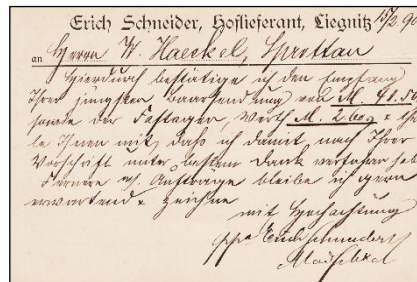 Erich Schneider, Hoflieferant, Liegnitz 15/2 90
an Herrn W. Haeckel, Sprottau
Hierdurch bestätige ich den Empfang
Ihrer jüngsten Baarsendung von M. 91.50
sowie der Faßlager, Werth M. 2.60, & thei-
le Ihnen mit, daß ich damit, nach Ihrer
Vorschrift unter bestem Dank verfahren hab
Fernere Aufträge bleibe ich gern
erwartend & zeichne
mit Hochachtung
ppa Erich Schneider